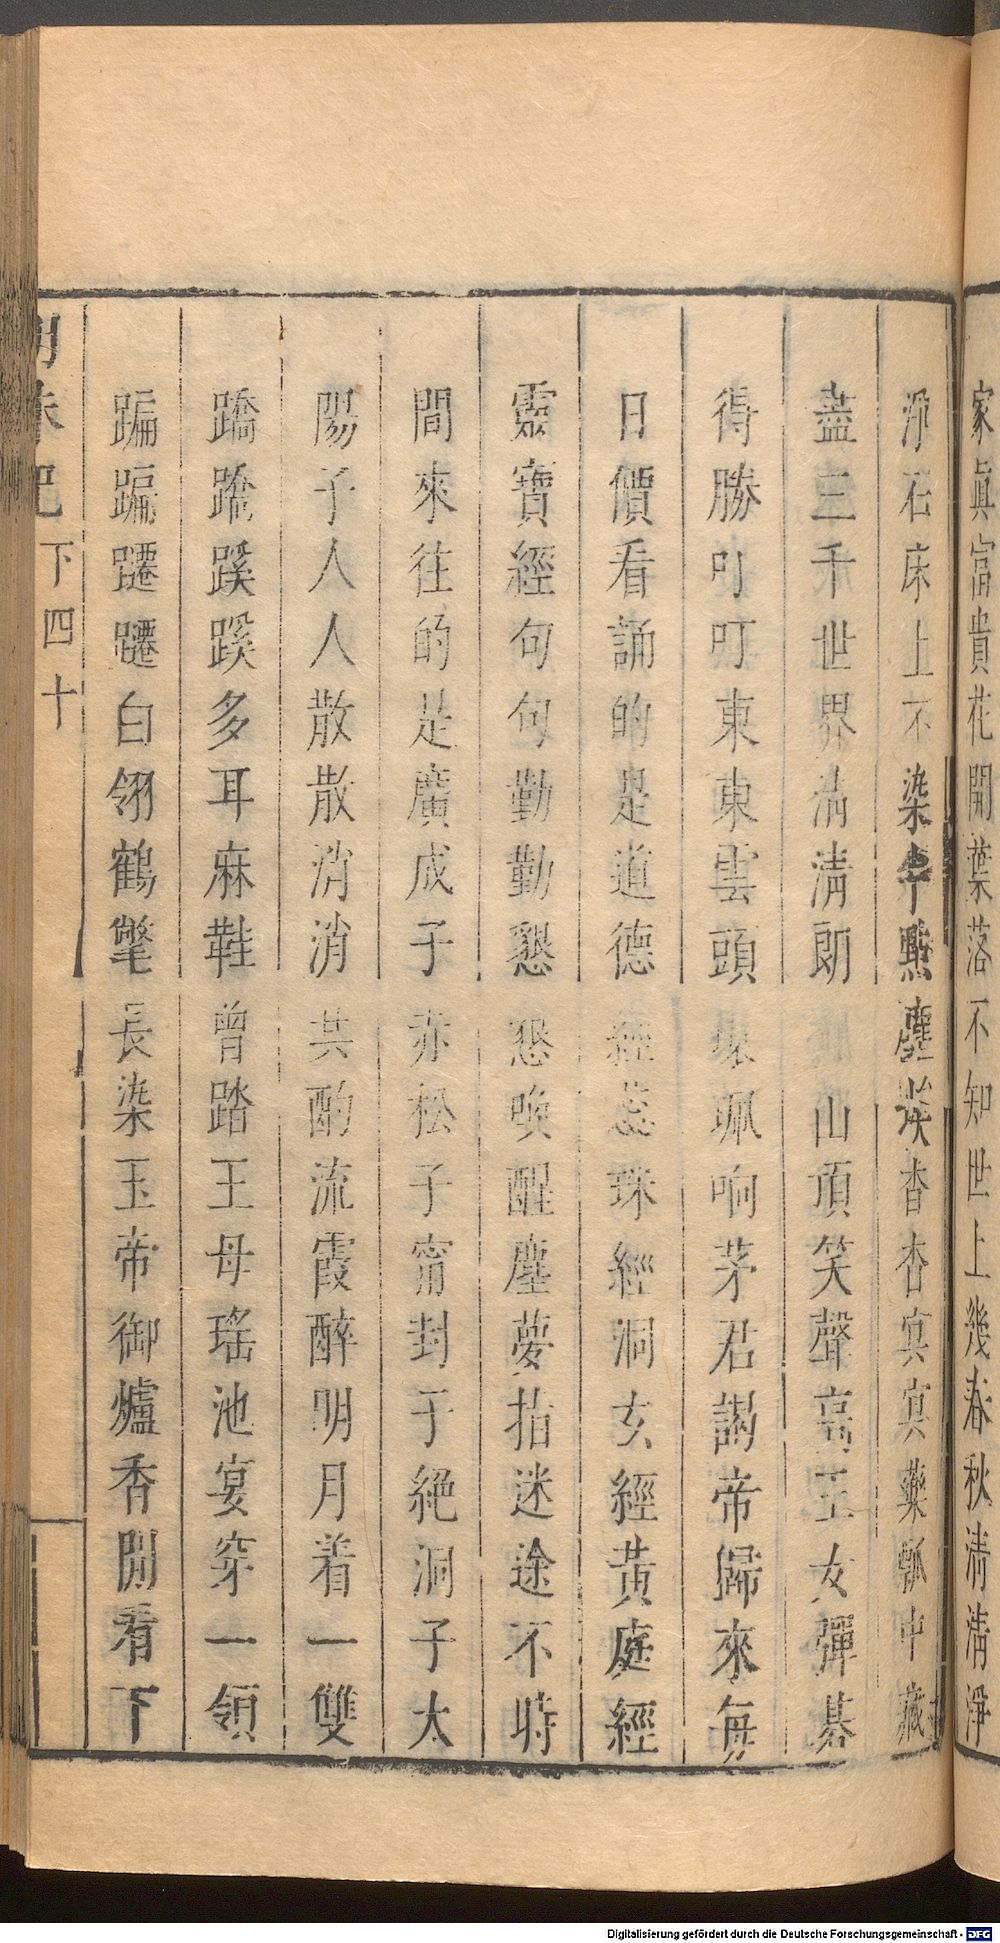 家眞富貴花開葉落不知世上幾春秋淸淸淨
淨石床上不染半點塵埃杳杳寘寘藥瓢中藏
盡三千世界淸淸朗 山頂笑聲高玉女彈碁
得勝叮叮東東雲頭環珮响茅君謁帝歸來每
日價看誦的是道德經蕊珠經洞玄經黃庭經
靈寶經句句勤勤懇懇喚醒塵夢指迷途不時
間來往的是廣成子赤松子甯封子絶洞子太
陽子人人散散消消共酌流霞醉明月着一雙
蹻蹻蹊蹊多耳麻鞋曾踏王母瑤池宴穿一領
蹁蹁躚躚白翎鶴氅長染玉帝御爐香閒看下
明珠記 下四十
Digitalisierung gefördert durch die Deutsche Forschungsgemeinschaft - DFG